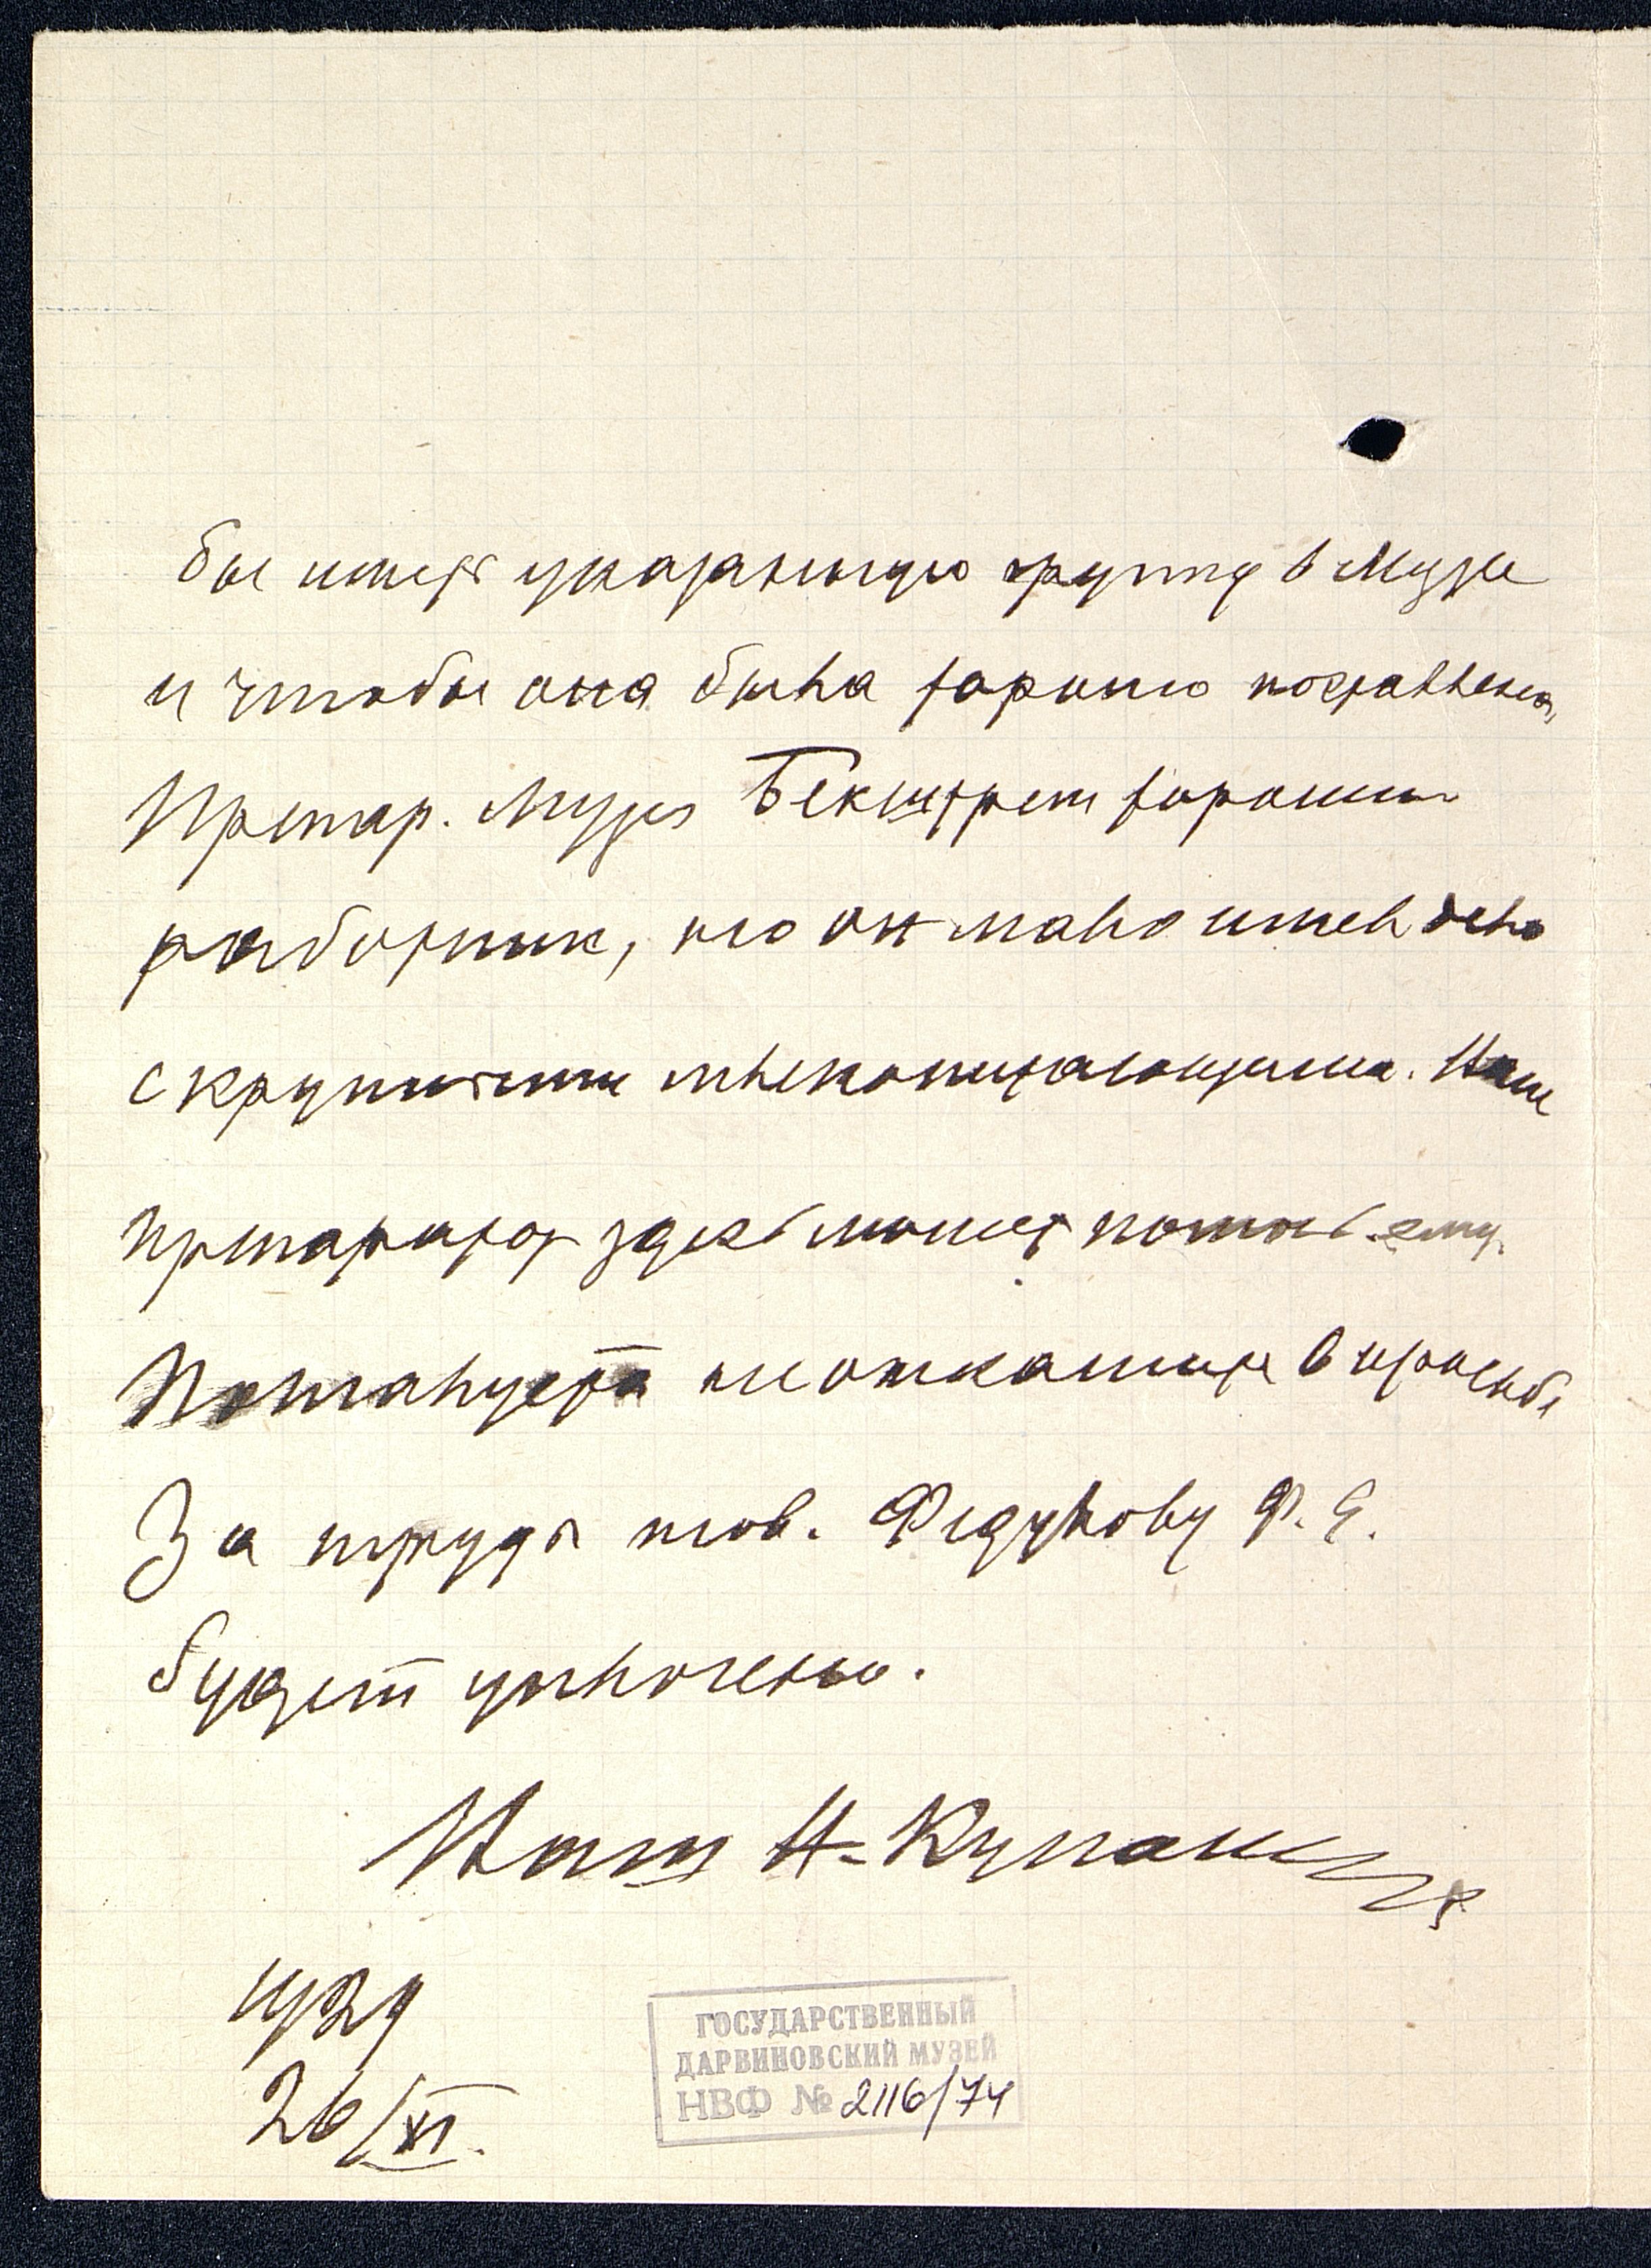 бы иметь указанную группу в Музее
и чтобы она была хорошо поставлена,
Препар. Музея хороший
работник, но он мало имел дела
с крупными млекопитающими. Наш
препаратор здесь может помочь ему.
Пожалуйста не откажите в просьбе
За труды тов. Федулову Ф. Е.
будет уплочено.
Ваш Н.
1929
26/XI.
ГОСУДАРСТВЕННЫЙ
ДАРВИНОВСКИЙ МУЗЕЙ
НВФ № 2116/74